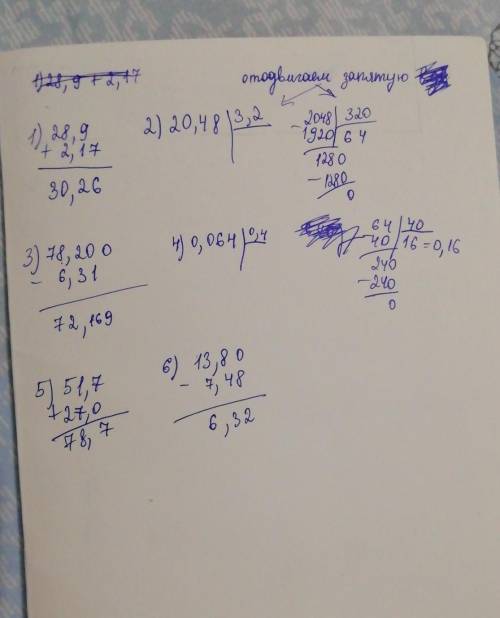 1) 28,9 + 2,17
отодвигаем запятую
1) 28,9
+ 2,17
30,26
2) 20,48 | 3,2
2048 | 320
- 1920 | 64
1280
- 1280
0
3) 78,200
- 6,31
72,169
4) 0,064 | 0,4
64 | 40
- 40 | 16 = 0,16
240
- 240
0
5) 51,7
+ 27,0
78,7
6) 13,80
- 7,48
6,32